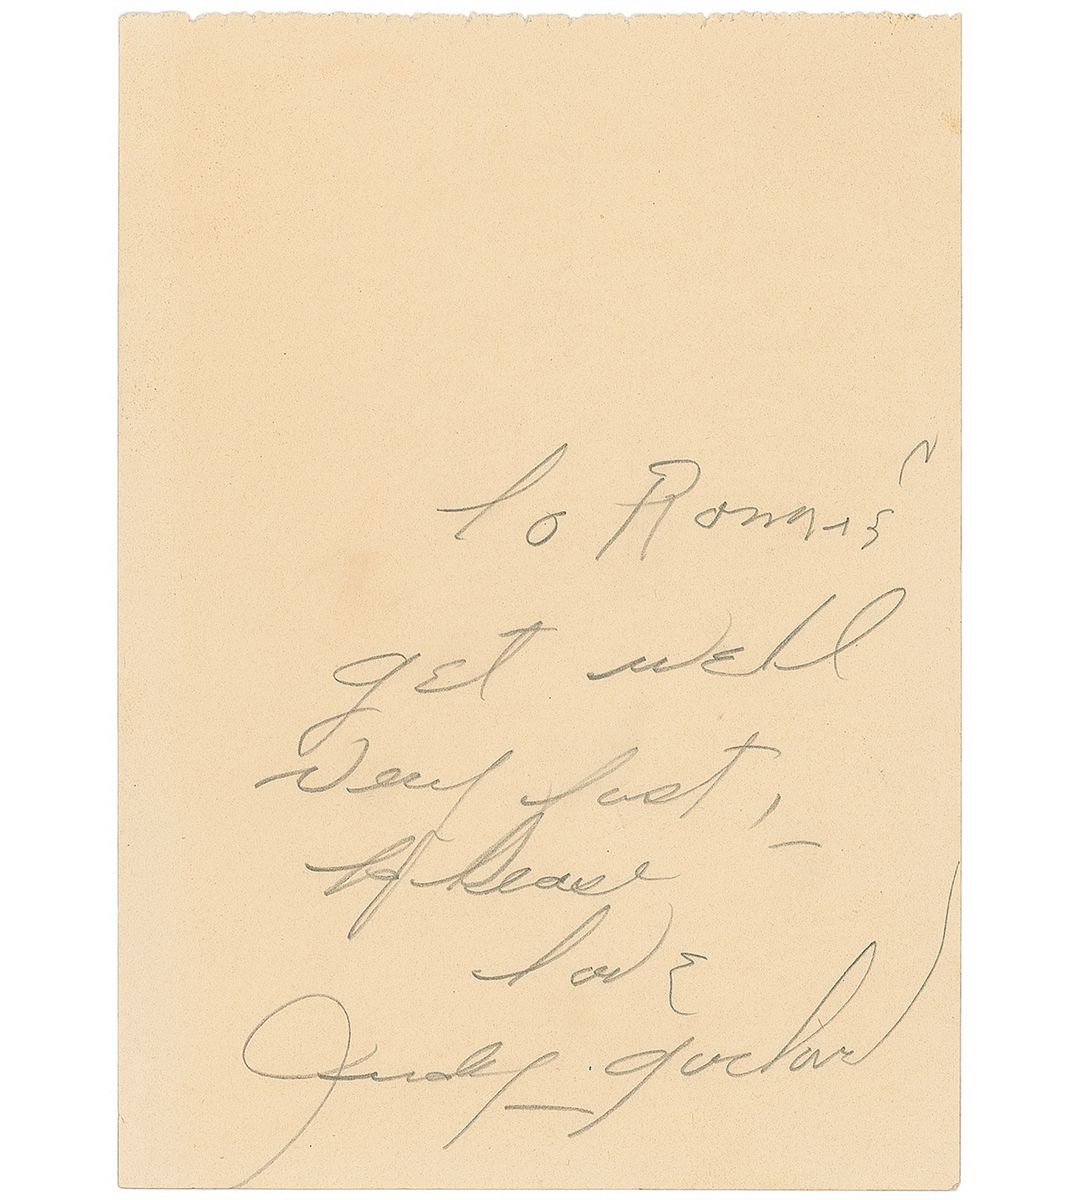 To Ronnie
get well
very fast, –
Please
love
Judy Garland